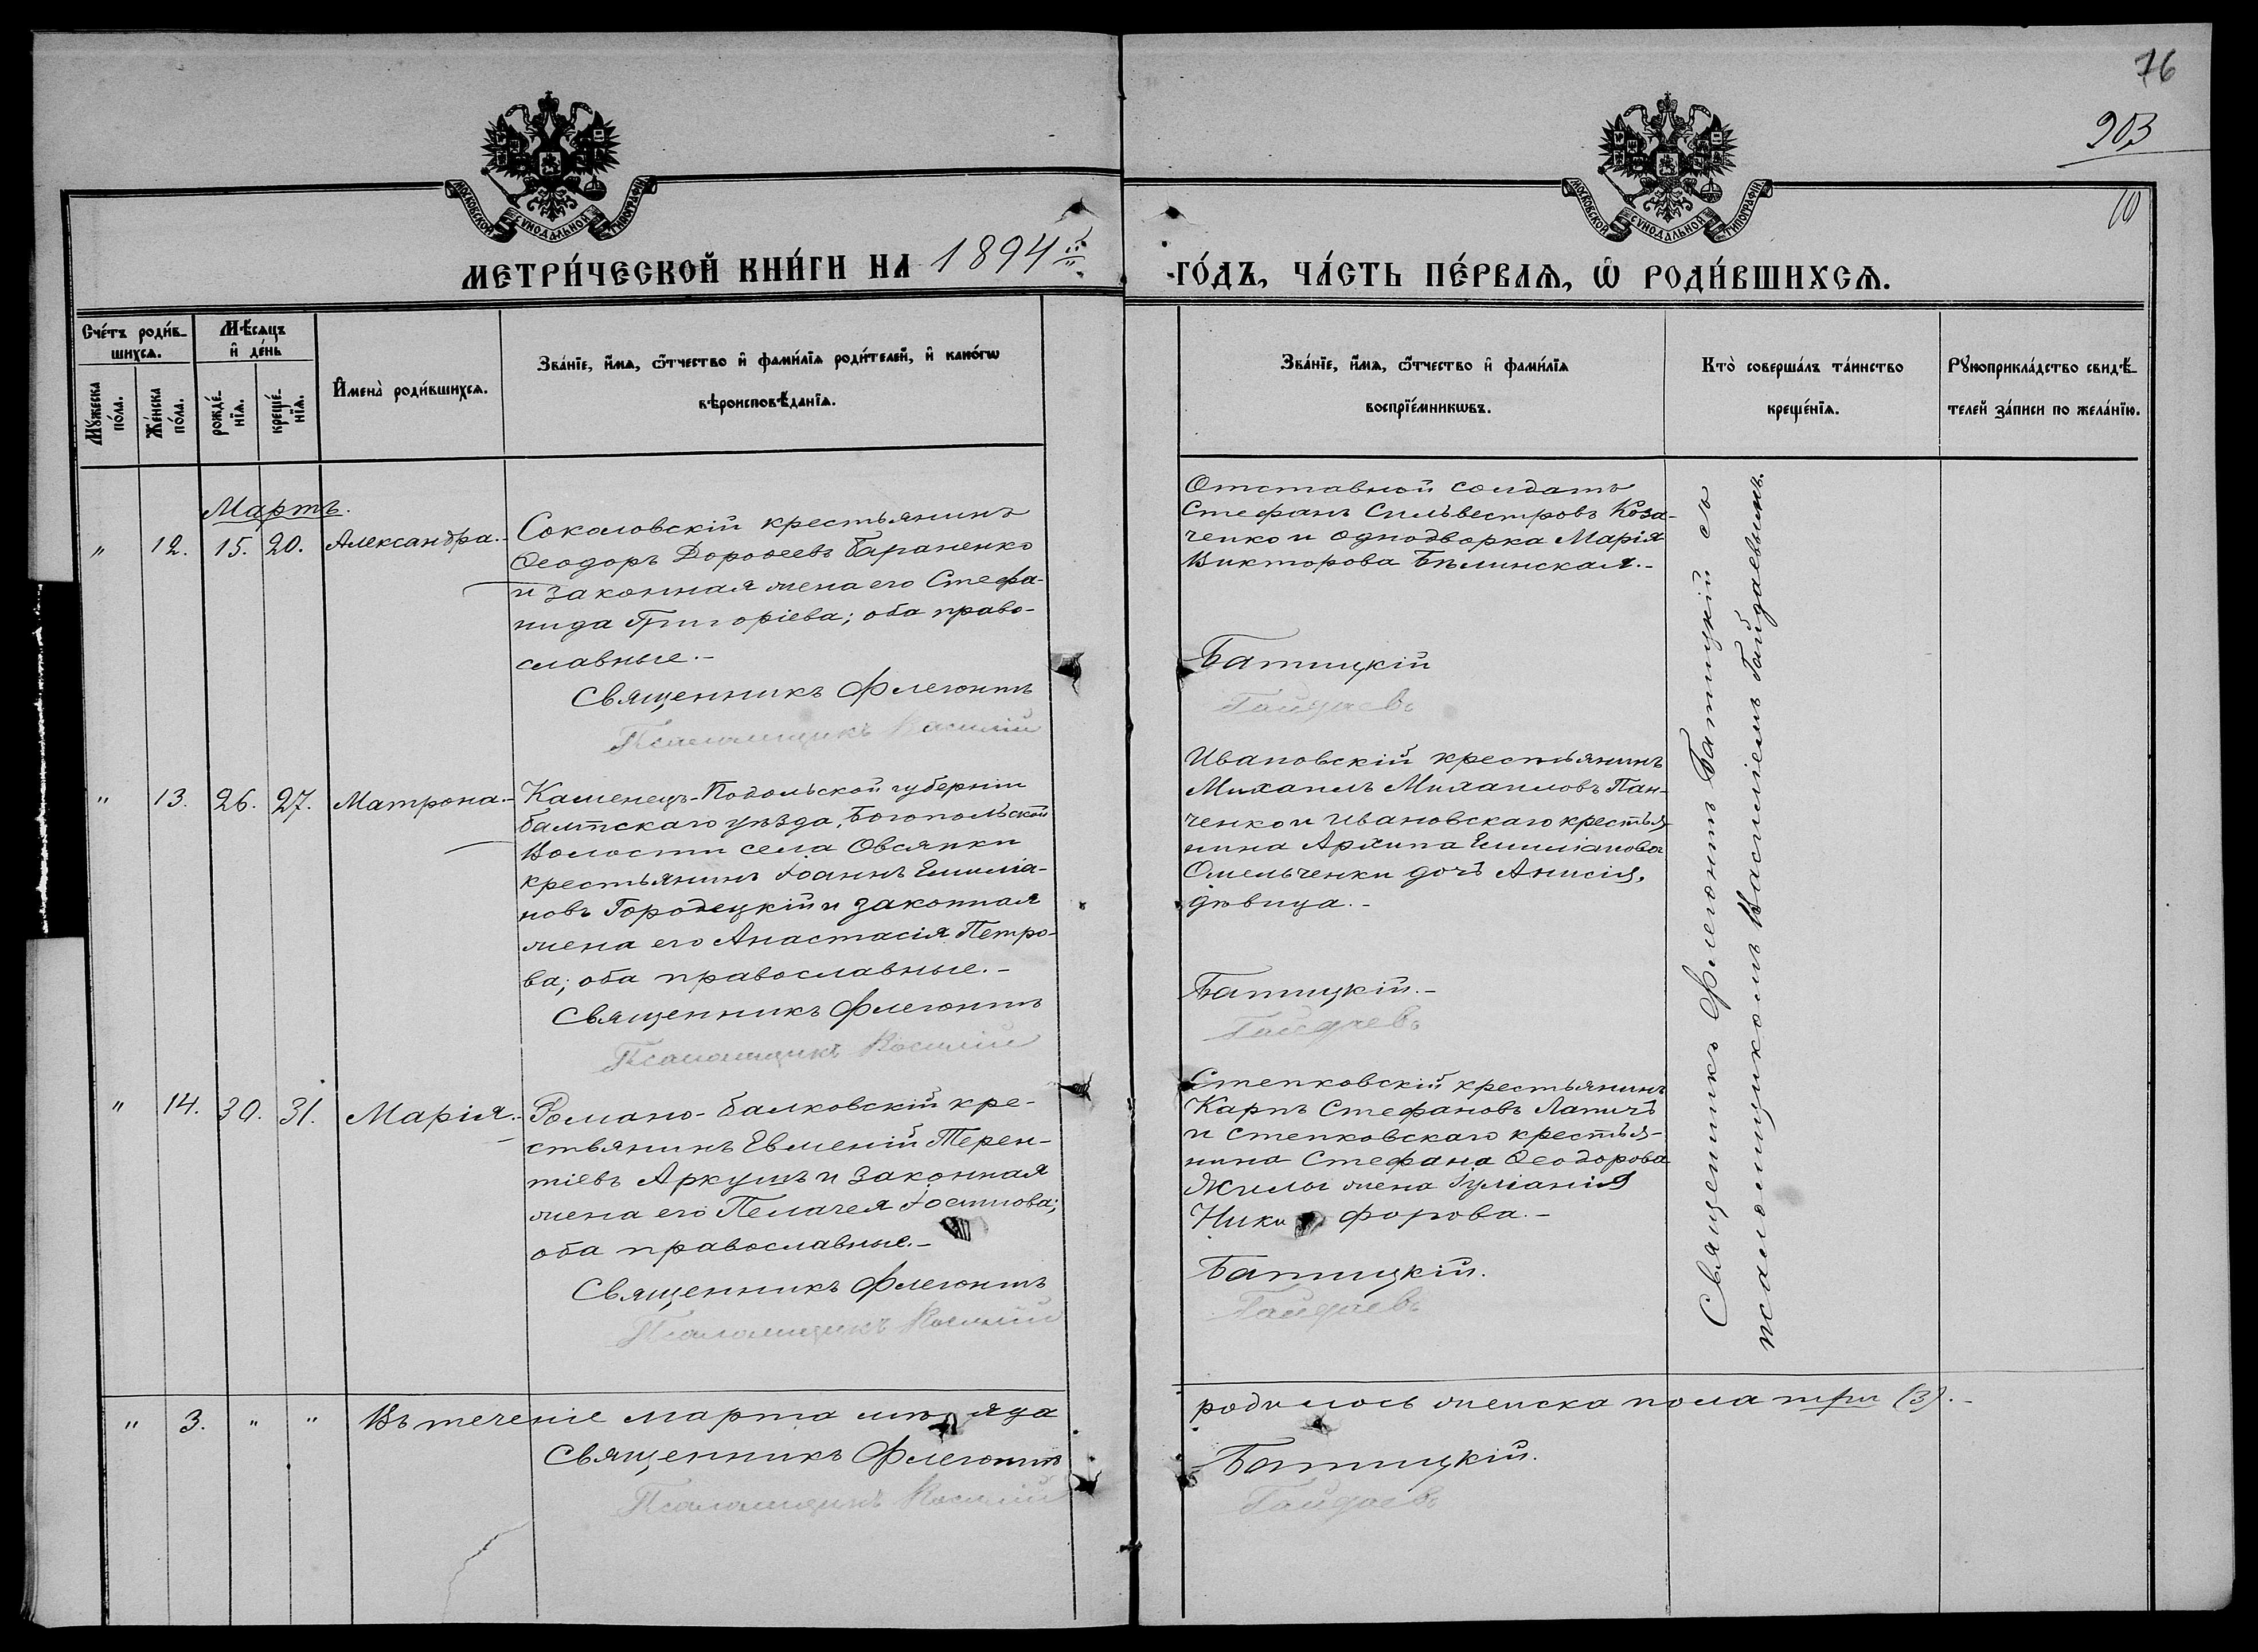 76
203
10
МОСКОВСКОЙ СѴНОДАЛЬНОЙ ТИПОГРАФІИ
МОСКОВСКОЙ СѴНОДАЛЬНОЙ ТИПОГРАФІИ
МЕТРИ́ЧЕСКОЙ КНИ́ГИ НА 1894й
ГО́ДЪ, ЧА́СТЬ ПЕ́РВАѦ, Ѡ РОДИ́ВШИХСѦ.
Сче́тъ роди́в-
шихсѧ.
Мꙋжеска по́ла.
Же́нска по́ла.
Мѣ́сѧцъ
и҆ де́нь
рожде́-
нїѧ.
креще́-
нїѧ.
И҆мена̀ роди́вшихсѧ.
Зва́нїе, и҆́мѧ, ѻ҆́тчество и҆ фами́лїѧ роди́телей, и҆ како́гѡ
вѣроисповѣ́данїѧ.
Зва́нїе, и҆́мѧ, ѻ҆́тчество и҆ фами́лїѧ
воспрїе́мникѡвъ.
Кто̀ соверша́лъ та́инство
креще́нїѧ.
Рꙋкоприкла́дство свидѣ́-
телей за́писи по жела́нїю.
Мартъ.
" 12. 15. 20. Александра.-
Соколовскій крестьянинъ
Ѳеодоръ Дороѳеевъ Бараненко
и законная жена его Стефа-
нида Григоріева; оба право-
славные.-
Священникъ Флегонтъ
Псаломщикъ Василій
Отставной солдатъ
Стефанъ Сильвестровъ Коза-
ченко и однодворка Марія
Викторова Бѣлинская.-
Батицкій
Гайдаевъ
" 13. 26. 27. Матрона.-
Каменец-Подольской губерніи
Балтскаго уѣзда, Богопольской
Волости села Овсянки
крестьянинъ Іоаннъ Емилiа-
новъ Городецкій и законная
жена его Анастасія Петро-
ва; оба православные.-
Священникъ Флегонтъ
Псаломщикъ Василій
Ивановскій крестьянинъ
Михаилъ Михаиловъ Пан-
ченко и Ивановскаго крестья
нина Архипа Емиліанова
Омельченки дочь Анисія,
дѣвица.-
Батицкій.-
Гайдаевъ
" 14. 30. 31. Марія.-
Романо-балковскій кре-
стьянинъ Евменій Терен-
тіевъ Аркушъ и законная
жена его Пелагея Іосипова;
оба православные.-
Священникъ Флегонтъ
Псаломщикъ Василій
Степковскій крестьянинъ
Карпъ Стефановъ Лапичъ
и степковскаго крестья-
нина Стефана Ѳеодорова
Жилы жена Іуліанія
Никифорова.-
Батицкій.
Гайдаевъ
Священникъ Флегонтъ Батицкій съ
псаломщикомъ Василіемъ Гайдаевымъ.
" 3. " " Въ теченіе марта мѣсяца
родилось женска пола три (3).-
Священникъ Флегонтъ
Батицкій.
Псаломщикъ Василій
Гайдаевъ